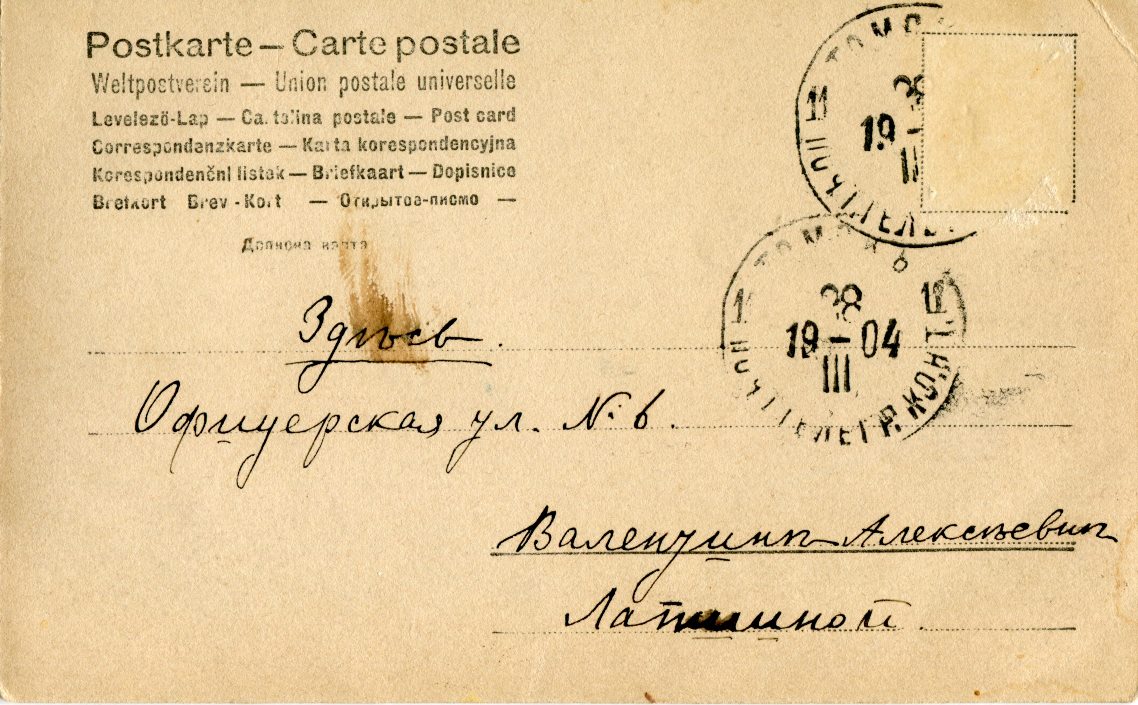 Postkarte — Carte postale
Weltpostverein — Union postale universelle
Levelező-Lap — Ca. tolina postale — Post card
Correspondenzkarte — Karta korespondencyjna
Korespondenční lístek — Briefkaart — Dopisnice
Brefkort Brev-Kort — Открытое-письмо —
Дописна карта
ТОМС
11
28
19 –
III
ТОМСКЪ
11 28 12
19 – 04
III
ТЕЛЕГР. КОНТ.
Здѣсь.
Офицерская ул. № 6.
Валентинѣ Алексѣевнѣ
Лапшиной.